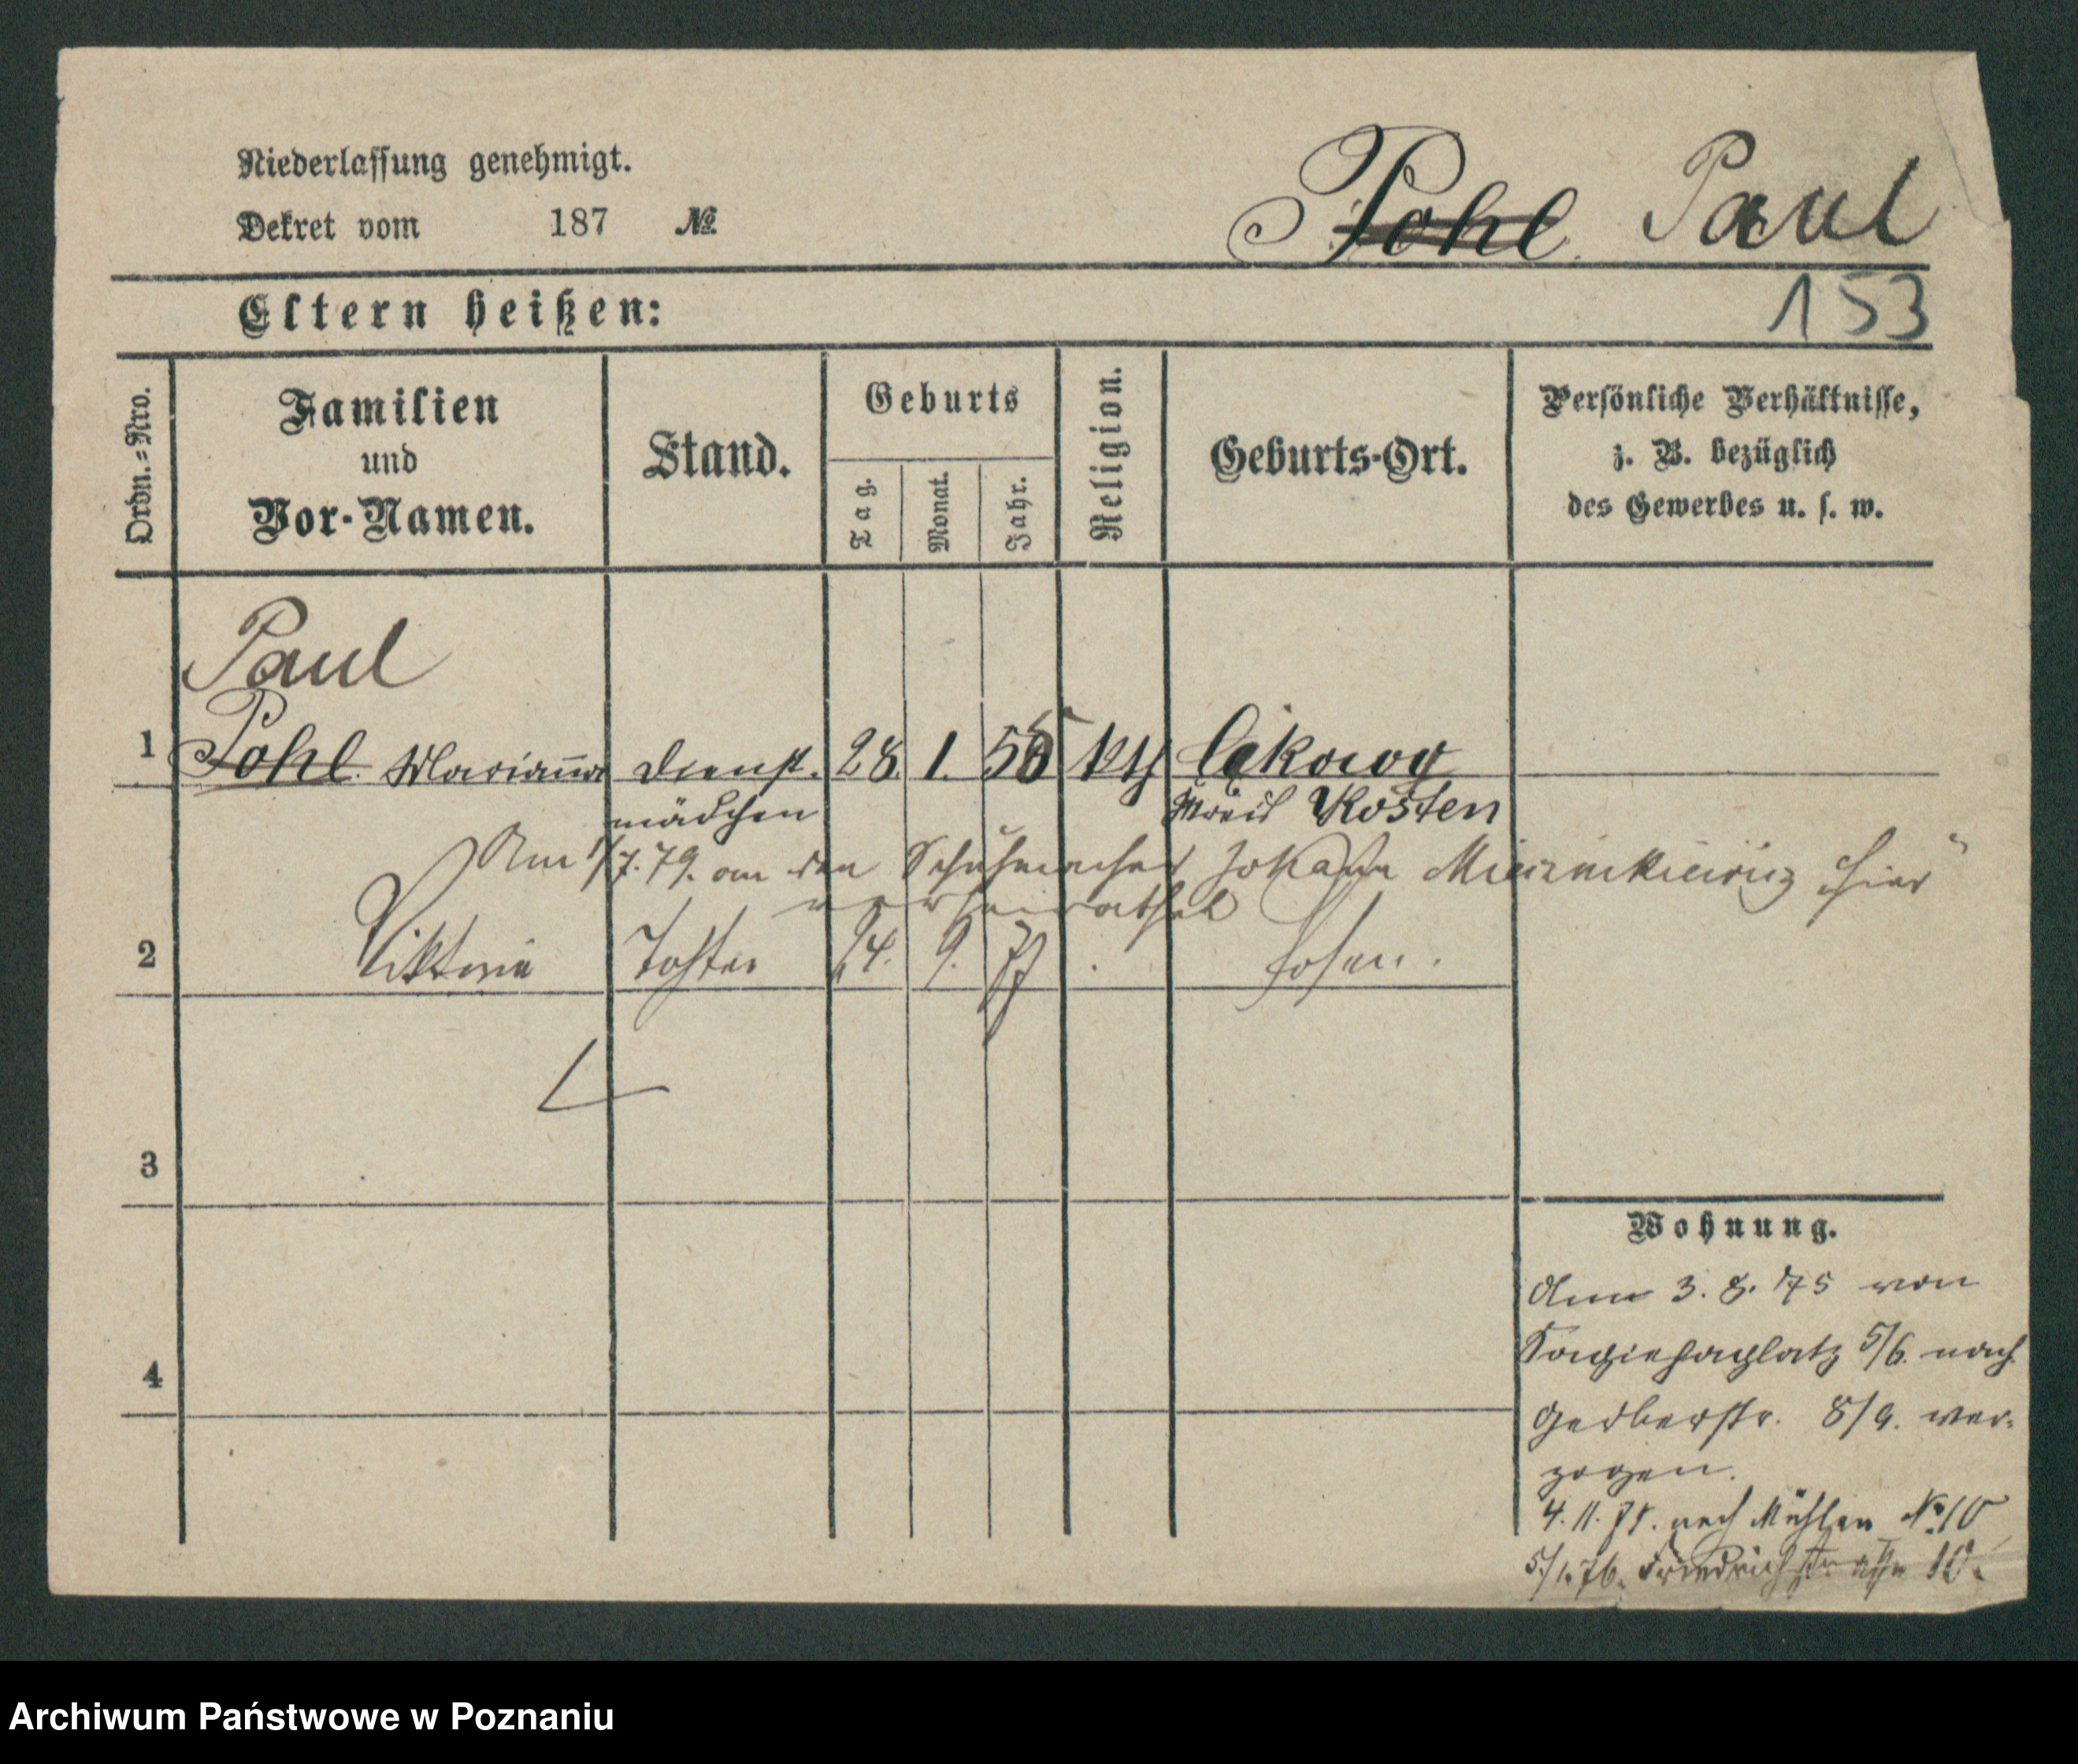 Niederlassung genehmigt.
Dekret vom 187 №
Pohl Paul
Eltern heißen:
153
Ordn.=Nro.
Familien
und
Vor-Namen.
Stand.
Geburts
Tag.
Monat.
Jahr.
Religion.
Geburts-Ort.
Persönliche Verhältnisse,
z. B. bezüglich
des Gewerbes u. s. w.
Paul
1 Pohl Marianna Dienst. 28. 1. kth
mädchen Kreis Kosten
Am 1/7.79. an den Schuhmacher Johann hier
verheirathet
2 Viktoria Tochter 24. 9. 77 . Posen.
3
4
Wohnung.
Am 3. 8. 75 von
Sapiehaplatz 5/6. nach
Gerberstr. 8/9. ver-
zogen.
4. 11. 75. nach Mühlen № 10
5/1.76. Friedrichstraße 10.
Archiwum Państwowe w Poznaniu